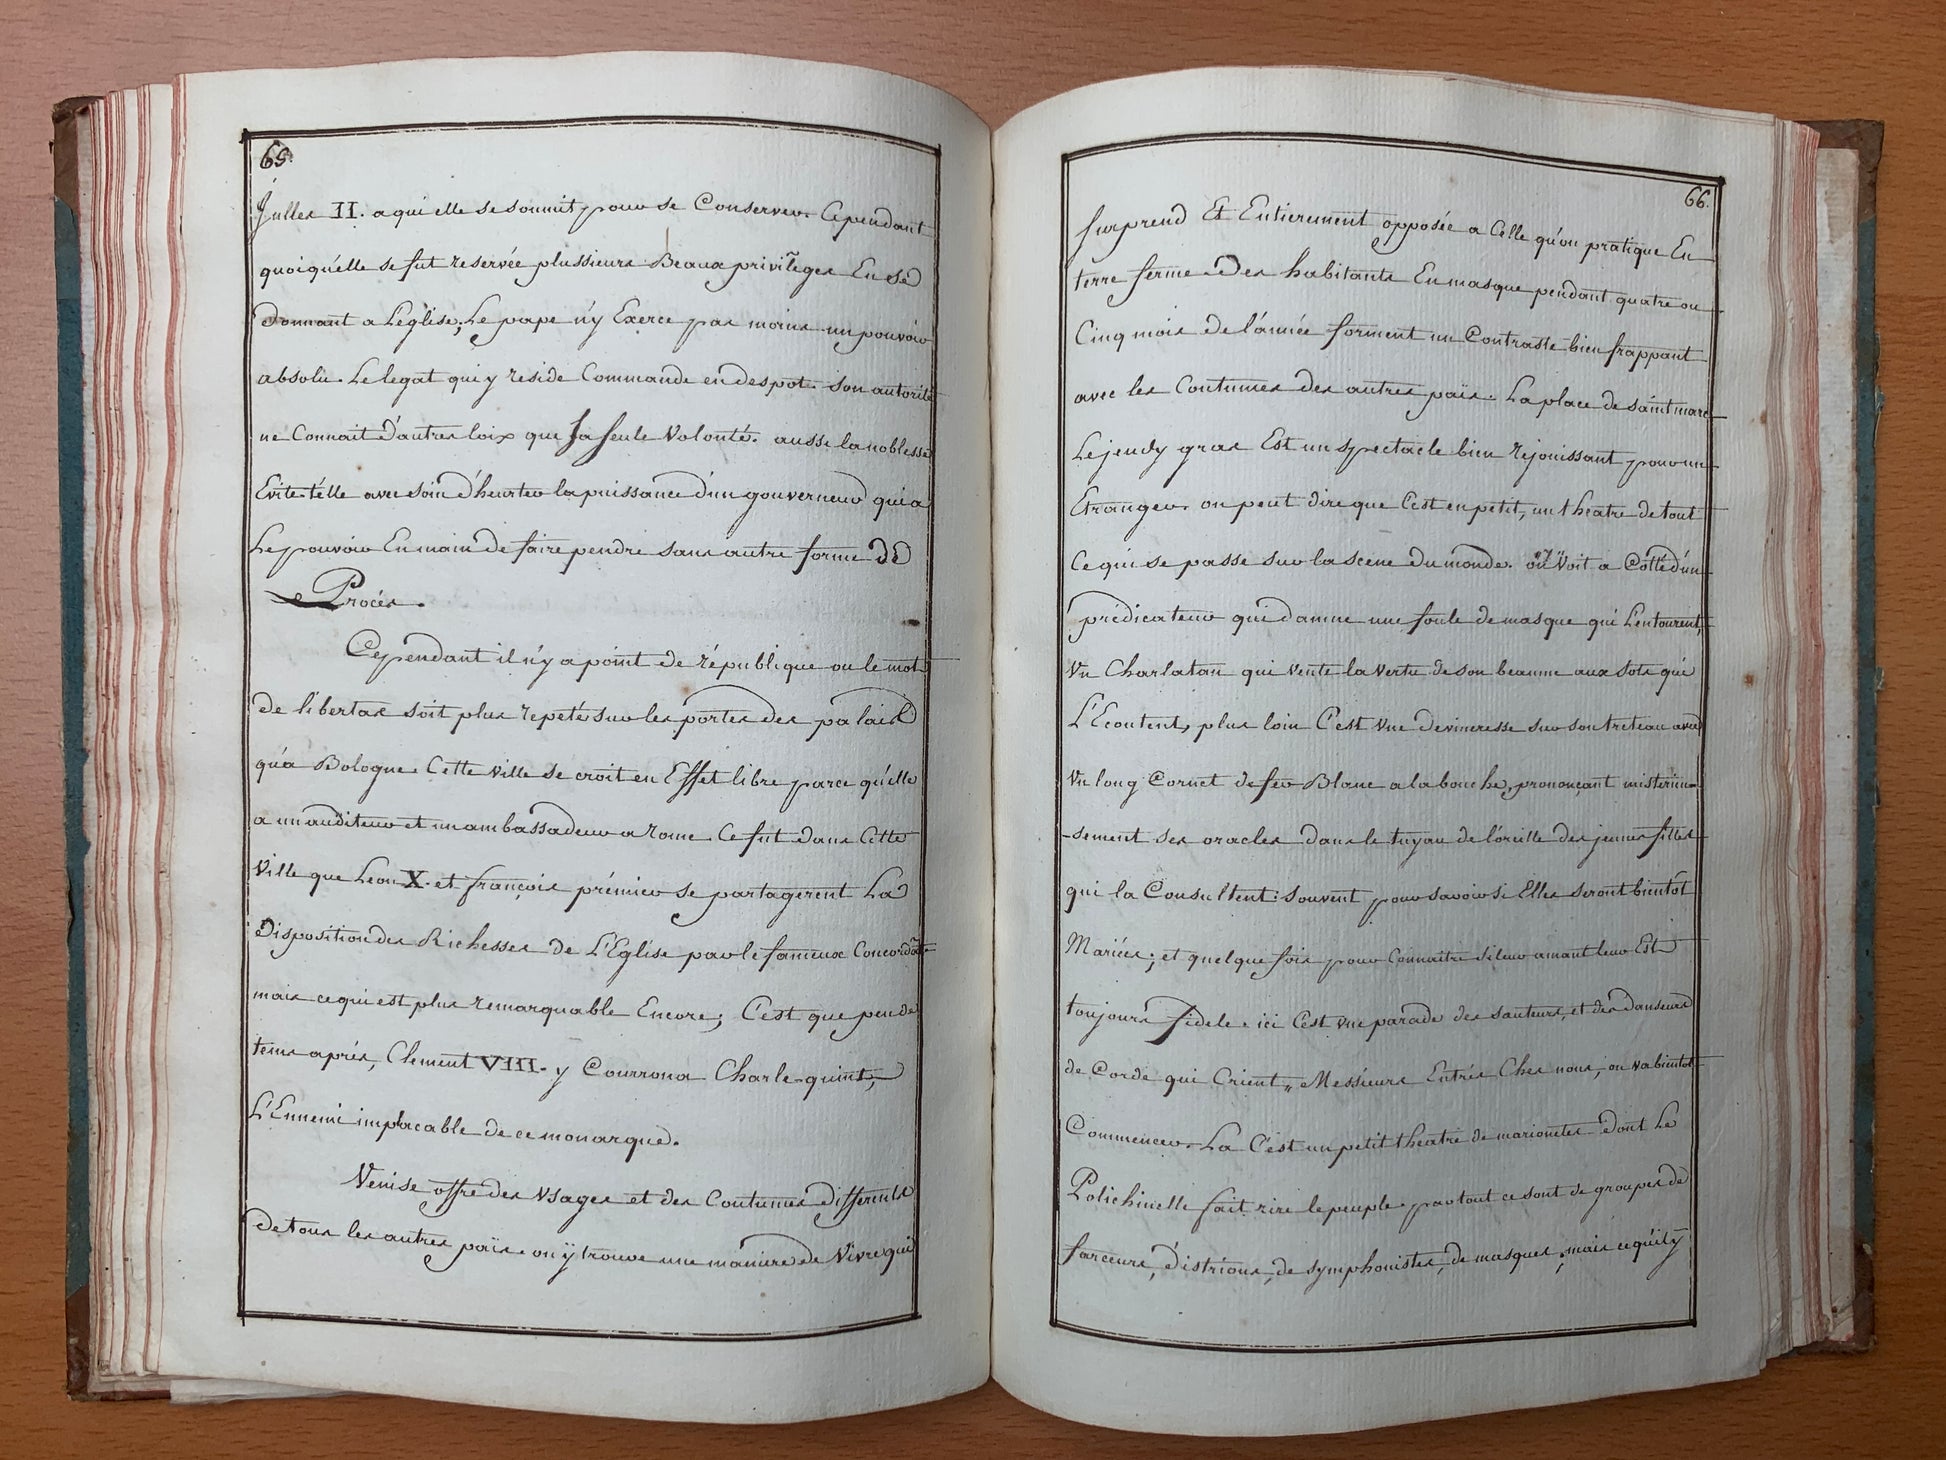 65.
Julles II. a qui elle se soumit pour se Conserver. Cependant
quoiqu'elle se fut reservée plussieurs Beaux privilèges En se
Donnant a L'église; Le pape n'y Exerce pas moins un pouvoir
absolu. Le legat qui y reside Commande en despote son autorité
ne Connait d'autres loix que sa seule Volonté. aussi la noblesse
Evite t'elle avec soin d'heurter la puissance d'un gouverneur qui a
Le pouvoir En main de faire pendre sans autre forme de
Procès.
Cependant il n'y a point de république ou le mot
de libertas soit plus repeté sur les portes des palais
qu'a Bologne. Cette ville se croit en Effet libre parce qu'elle
a un auditeur et un ambassadeur a rome. Ce fut dans Cette
Ville que Leon X. et françois prémier se partagerent La
Disposition des Richesses de L'Eglise par le fameux Concordat
mais ce qui est plus remarquable Encore; C'est que peu de
tems aprés, Clement VIII. y Courrona Charle-quint,
L'Ennemi implacable de ce monarque.
Venise offre des Usages et des Coutumes differents
De tous les autres païs. on ÿ trouve une maniere de Vivre qui
66.
surprend Et Entierement opposée a Celle qu'on pratique En
terre ferme. Des habitants En masque pendant quatre ou
Cinq mois de l'année forment un Contraste bien frappant
avec les Coutumes des autres païs. La place de saint marc
Le jeudy gras Est un spectacle bien rejouissant pour un
Etranger. on peut dire que C'est en petit, un theatre de tout
Ce qui se passe sur la scene du monde. on y Voit a Cotté d'un
prédicateur qui damne une foule de masque qui L'entourent,
Un Charlatan qui vente la vertu de son beaume aux sots qui
L'Ecoutent, plus loin C'est Une devineresse sur son treteau avec
Un long Cornet de fer Blanc a la bouche, prononçant misterieu-
-sement ses oracles dans le tuyau de l'oreille des jeunes filles
qui la Consultent: souvent pour savoir si Elles seront bientôt
Mariées; et quelque fois pour Connaitre si leur amant leur Est
toujours fidele. ici C'est une parade des sauteurs, et des danseurs
de Corde qui Crient „ Messieurs Entrés Ches nous, on va bientot
Commencer. La C'est un petit theatre de marionetes dont Le
Polichinelle fait rire le peuple. partout ce sont de groupes de
farceurs, d'istrions, de symphonistes, de masques; mais ce qu'il y